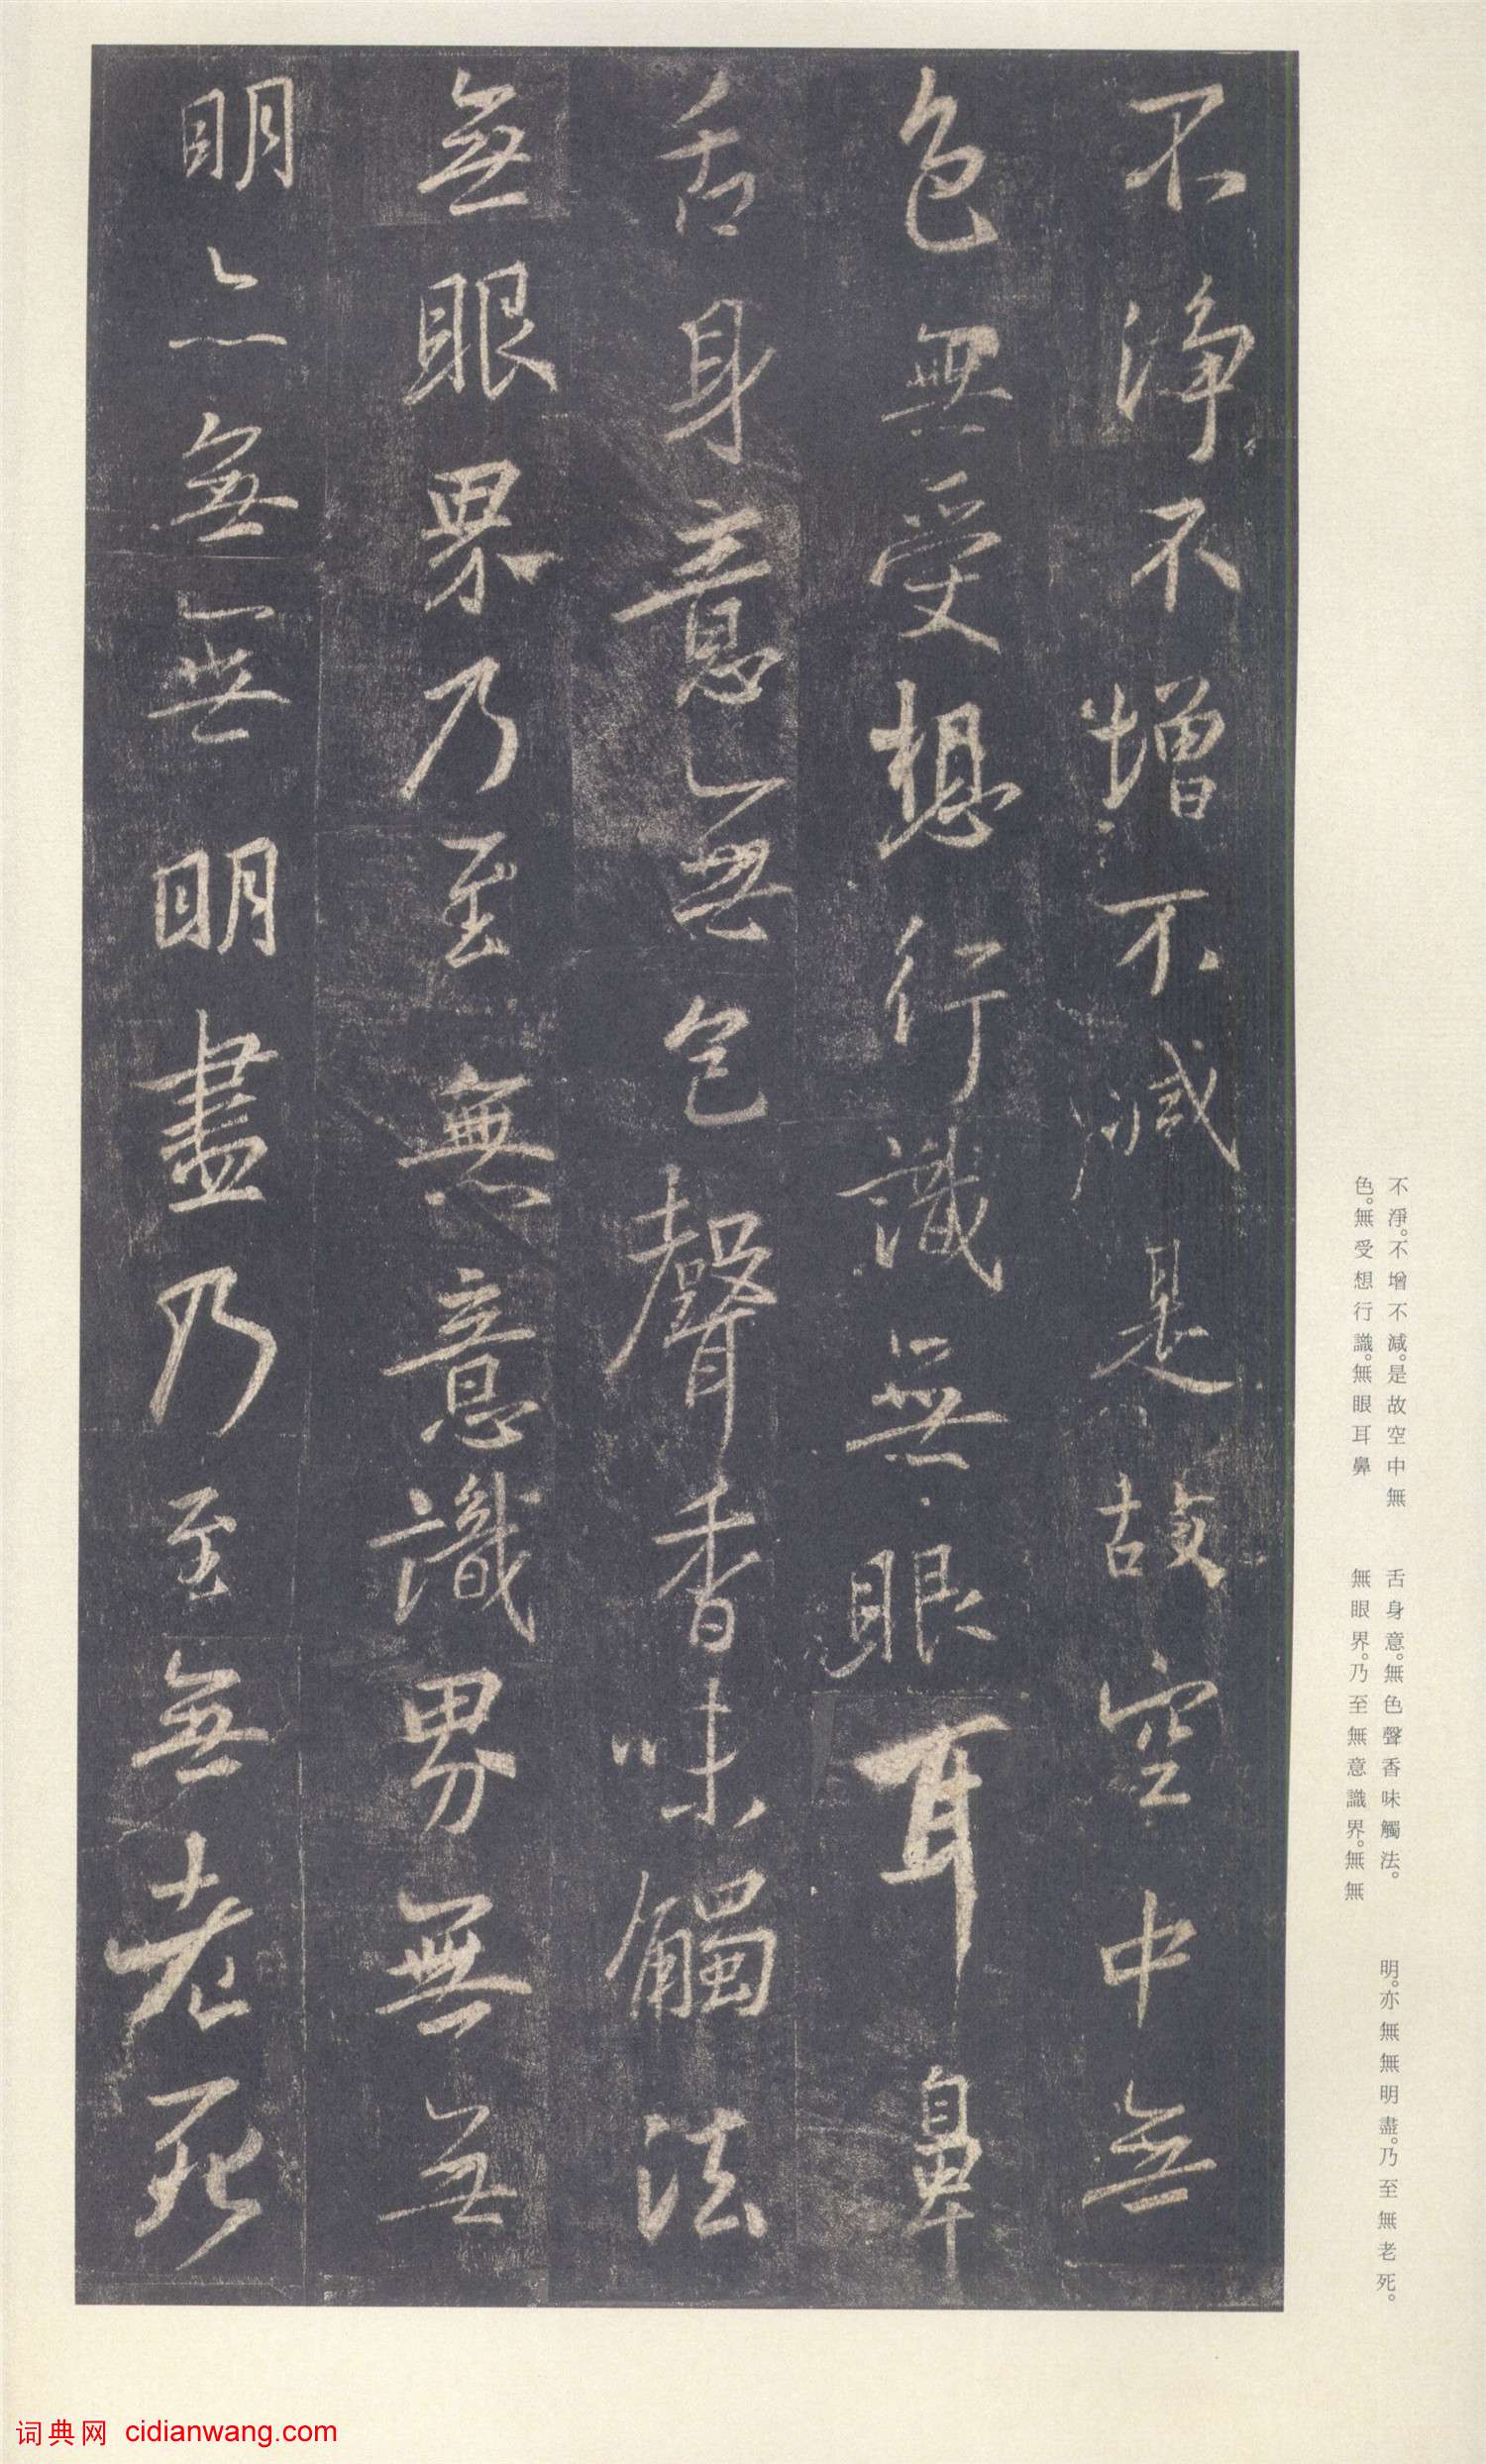 不淨不增不減是故空中無
色無受想行識無眼耳鼻
舌身意無色聲香味觸法
無眼界乃至無意識界無無
明亦無無明盡乃至無老死
不淨。不增不減。是故空中無
色。無受想行識。無眼耳鼻
舌身意。無色聲香味觸法。
無眼界。乃至無意識界。無無
明。亦無無明盡。乃至無老死。
词典网 cidianwang.com